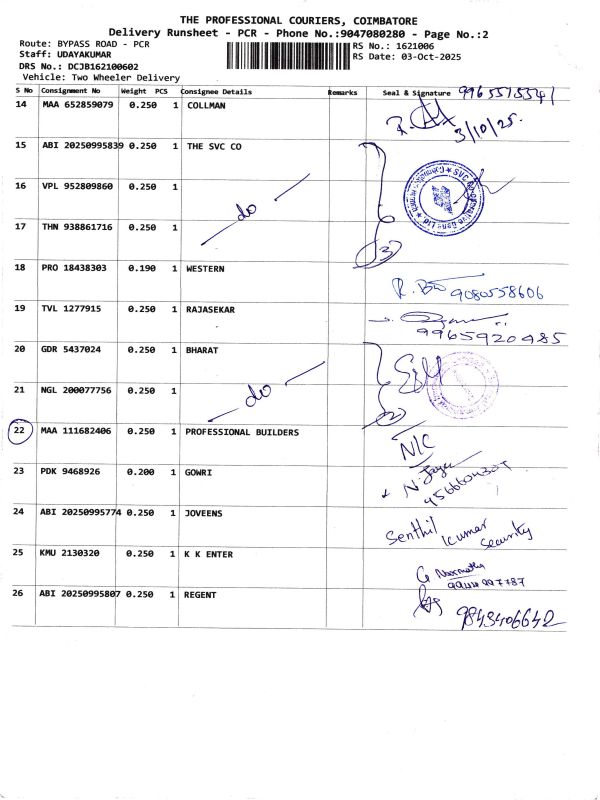 THE PROFESSIONAL COURIERS, COIMBATORE
Delivery Runsheet - PCR - Phone No.:9047080280 - Page No.:2
Route: BYPASS ROAD - PCR
RS No.: 1621006
Staff: UDAYAKUMAR
RS Date: 03-Oct-2025
DRS No.: DCJB162100602
Vehicle: Two Wheeler Delivery
S No Consignment No Weight PCS Consignee Details Remarks Seal & Signature
14 MAA 652859079 0.250 1 COLLMAN
3/10/25.
15 ABI 20250995839 0.250 1 THE SVC CO
16 VPL 952809860 0.250 1
-do-
17 THN 938861716 0.250 1
3
18 PRO 18438303 0.190 1 WESTERN
9080558606
19 TVL 1277915 0.250 1 RAJASEKAR
9965920485
20 GDR 5437024 0.250 1 BHARAT
21 NGL 200077756 0.250 1
-do-
2
22 MAA 111682406 0.250 1 PROFESSIONAL BUILDERS
N/C
23 PDK 9468926 0.200 1 GOWRI
24 ABI 20250995774 0.250 1 JOVEENS
Senthil Kumar
Security
25 KMU 2130320 0.250 1 K K ENTER
26 ABI 20250995807 0.250 1 REGENT
9843406642